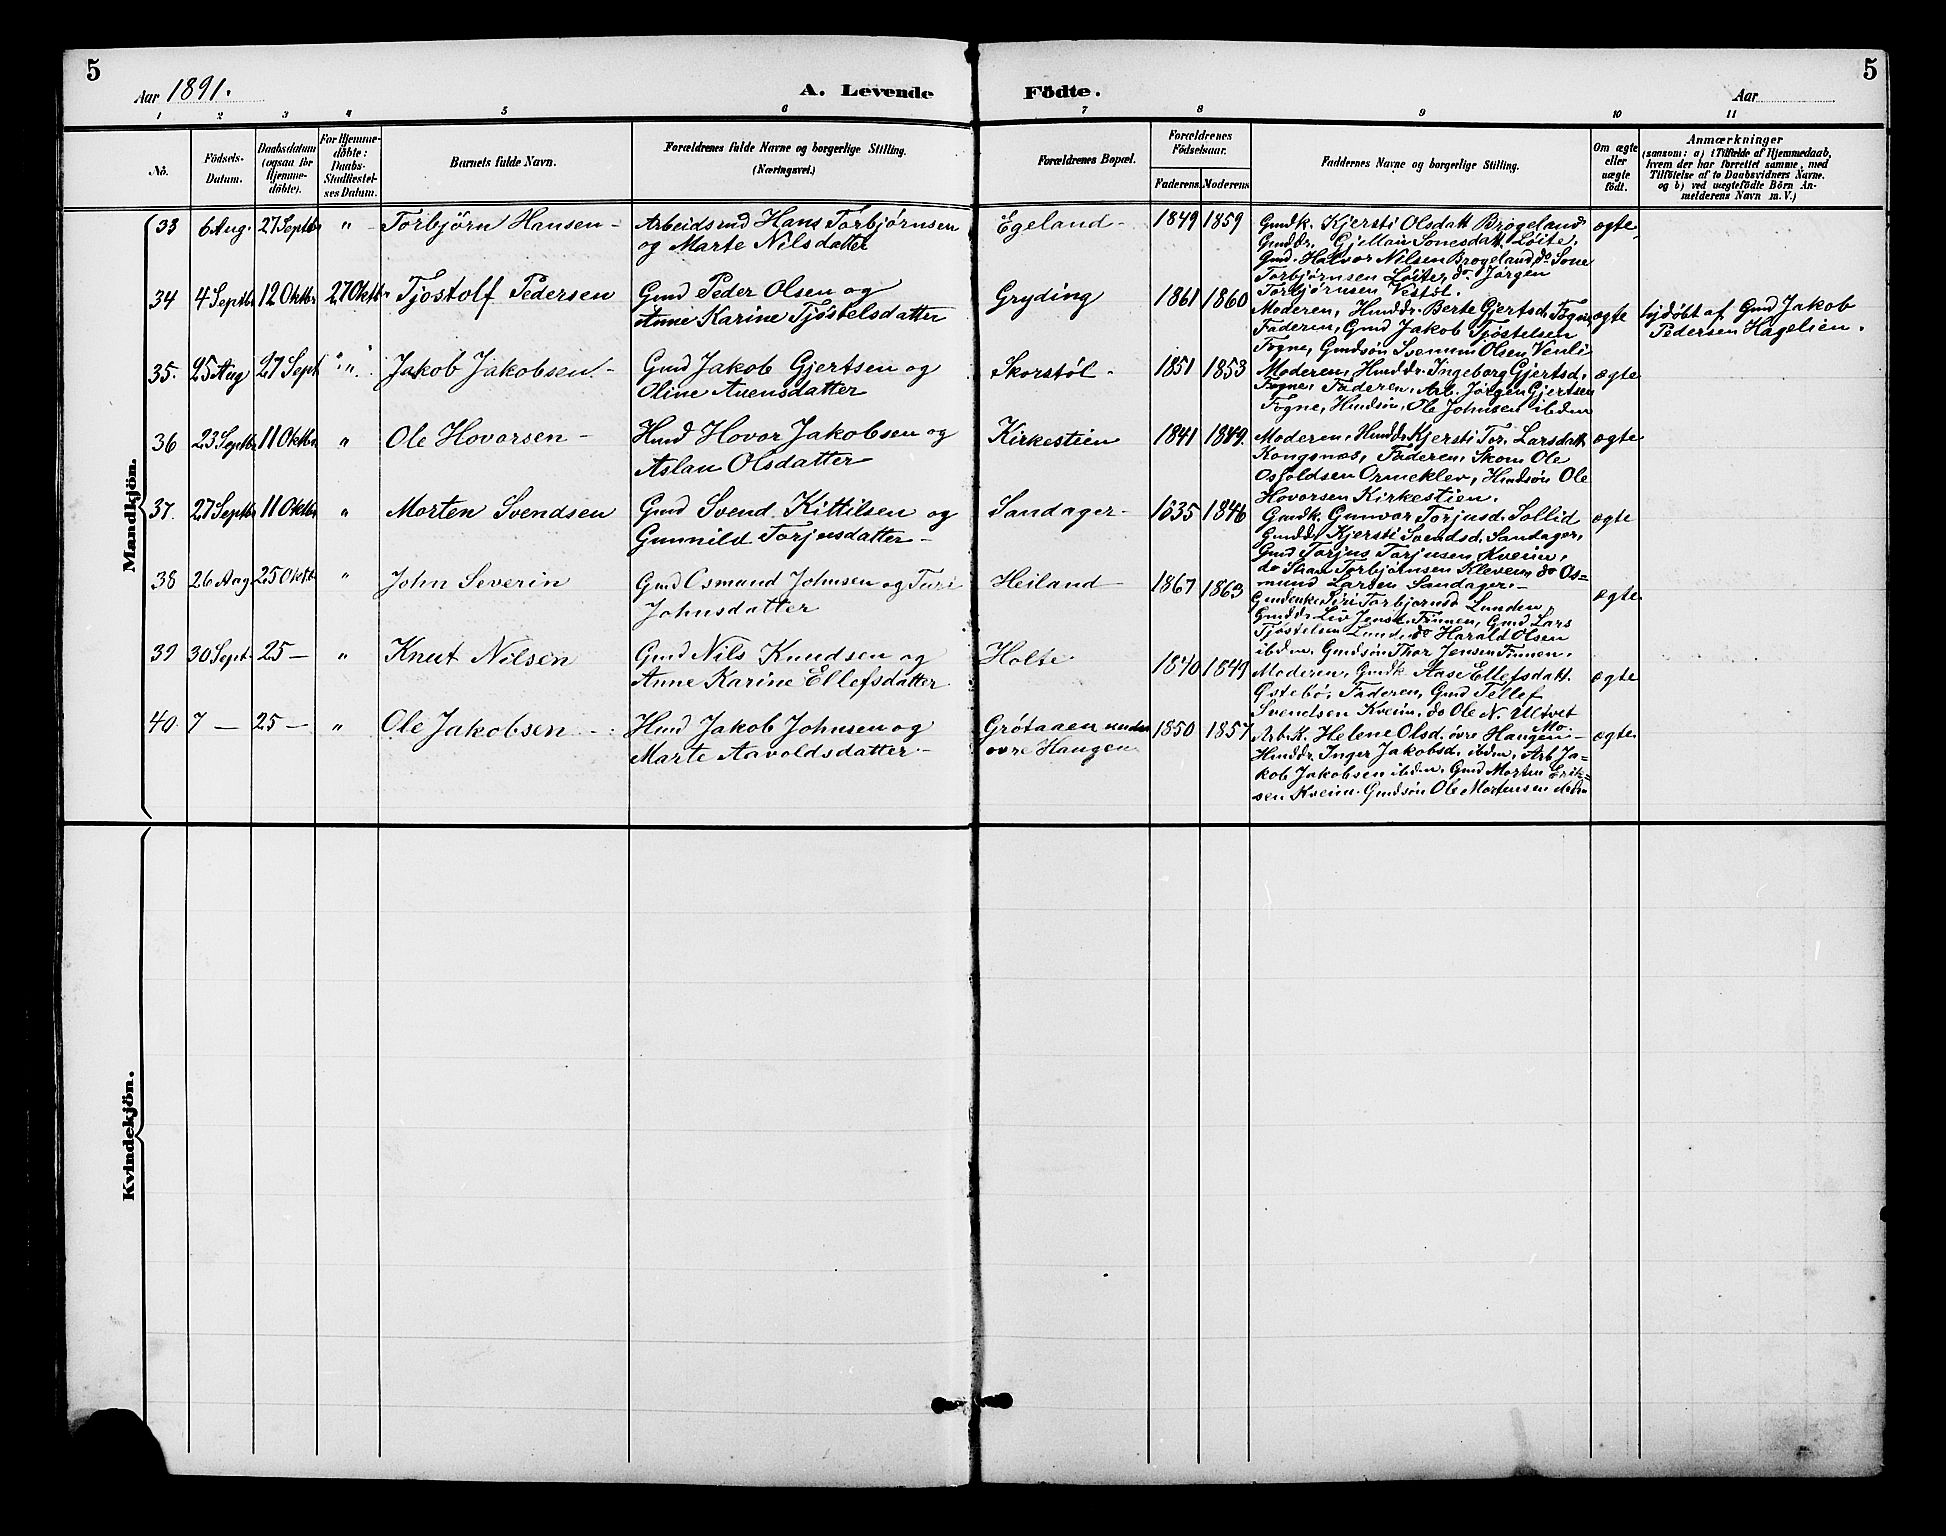 5
Aar 1891.
A. Levende Födte.
Aar
5
1 2 3 4 5 6 7 8 9 10 11
No.
Födsels-Datum.
Daabsdatum (ogsaa för Hjemme-döbte).
For Hjemme-döbte: Daabs-Stadfæstel-ses Datum.
Barnets fulde Navn.
Forældrenes fulde Navne og borgerlige Stilling. (Næringsvei.)
Forældrenes Bopæl.
Forældrenes Födselsaar.
Faderens
Moderens
Faddernes Navne og borgerlige Stilling.
Om ægte eller uægte födt.
Anmærkninger
(sansom: a) i Tilfælde af Hjemmedaab,
hvem der har forrettet samme, med
Tilföielse af to Daabsvidners Navne.
og b) ved uægtefödte Börn An-
melderens Navn m. V.)
Mandkjön.
33 6 Aug. 27 Septbr " Torbjörn Hansen - Arbeidsmd Hans Torbjørnsen
og Marte Nilsdatter
Egeland - 1849 1859
Gmdk. Kjersti Olsdatt Brøgeland
Gmddr. Sonesdatt. Løite.
Gmd. Halvor Nilsen Brøgeland, do Sone
Torbjørnsen Løite, do. Jørgen
Torbjørnsen Vestøl.
ægte
34 4 Septbr 12 Oktbr 27 Oktbr Tjøstolf Pedersen Gmd Peder Olsen og
Anne Karine Tjøstelsdatter
Gryding 1861 1860
Moderen, Hmddr. Berte Gjertsd. Fogne,
Faderen, Gmd Jakob Tjøstelsen
Fogne, Gmdsøn Svenum Olsen Venli
ægte
hjdöbt af Gmd Jakob
Pedersen Hagelien.
35. 25 Aug 27 Sept " " Jakob Jakobsen. - Gmd Jakob Gjertsen og
Oline Avensdatter
Skorstøl - 1851 1853
Moderen, Hmddr. Ingeborg Gjertsd.
Fogne, Faderen, Arb. Jørgen Gjertsen
Fogne, Hmdsön, Ole Johnsen ibdm
ægte
36 23 Septbr 11 Oktbr " Ole Hovorsen - Hmd Hovor Jakobsen og
Aslau Olsdatter
Kirkestien 1841 1849.
Moderen, Hmddr Kjersti Tor. Larsdatt
Kongsnæs, Faderen, Skom Ole
Osfoldsen Ormeklev, Hmdsön Ole
Hovorsen Kirkestien.
ægte
37. 27 Septbr 11 Oktbr " Morten Svendsen Gmd Svend Kittilsen og
Gunnild Torjusdatter -
Sandager - 1835 1846
Gmdk. Gunvor Torjusd. Sollid
Gmddr Kjersti Svendsd. Sandager,
Gmd Torjus Torjusen Kveim,
do Torbjørnsen Kleveim, do Os-
mund Larsen Sandager -
ægte
38 26 Aug 25 Oktb " John Severin Gmd Osmund Johnsen og Turi
Johnsdatter
Heiland - 1867 1863
Gmdenke Siri Torbjørnsd Lunden,
Gmddr. Liv Jensd. Finnen, Gmd Lars
Tjøstelsen Lund, do Harald Olsen
ibdm, Gmdsön Thor Jensen Finnen.
ægte
39 30 Sept 25 — " Knut Nilsen Gmd Nils Knudsen og
Anne Karine Ellefsdatter
Holte 1840 1849
Moderen, Gmdk Aase Ellefsdatt.
Østebö, Faderen, Gmd Tellef
Svendsen Kveim, do Ole N. Ultvet
ægte
40. 7 — 25 — " Ole Jakobsen Hmd Jakob Johnsen og
Marte Aavoldsdatter -
Grötaaen under
øvre Haugen 1850 1857
Mo-
Arb.K. Helene Olsd. övre Haugen. -
Hmddr. Inger Jakobsd. ibdm, Arb Ja-
kob Jakobsen ibdm, Gmd Morten Erik-
sen Kveim. Gmdsön Ole Mortensen ibdm
ægte
Kvindekjön.